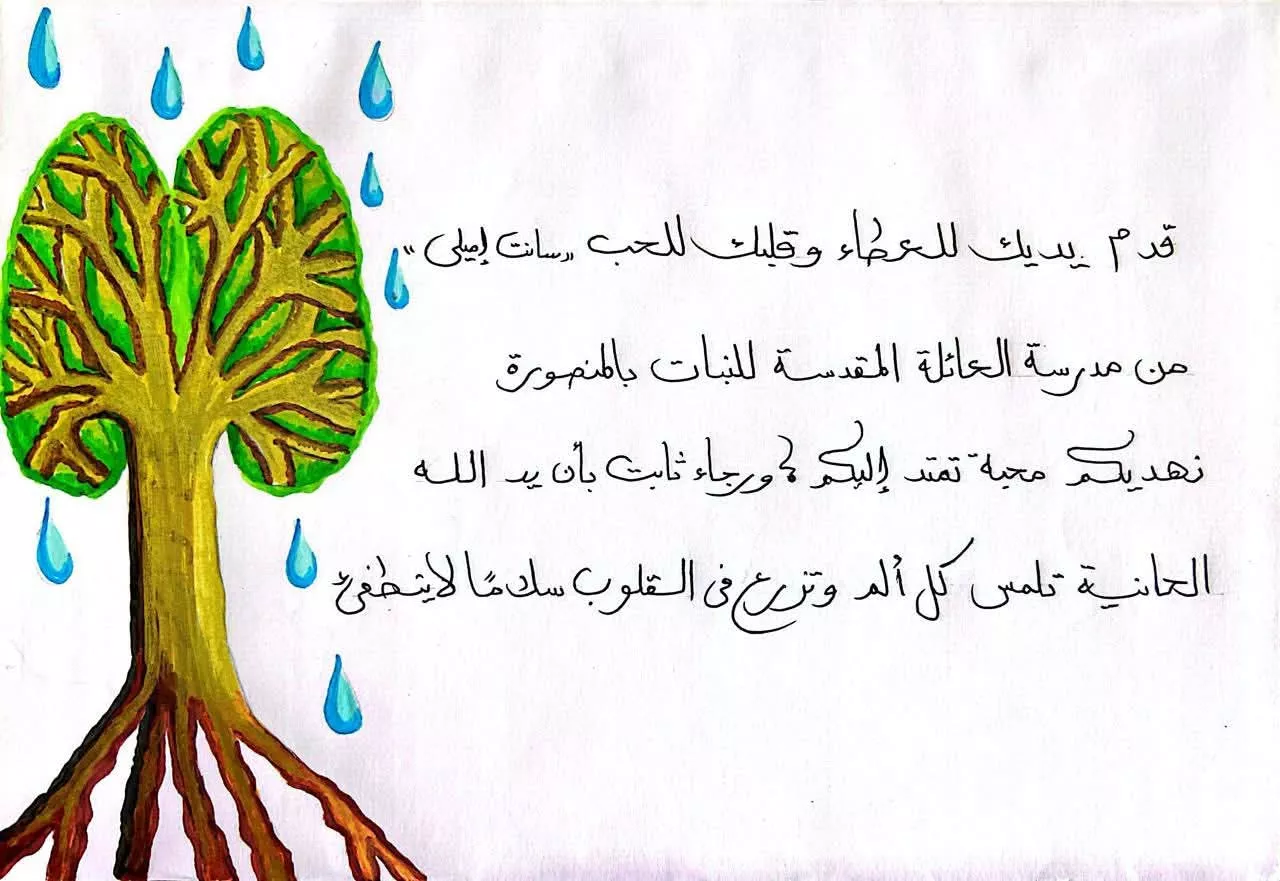 قدم يديك للعطاء وقلبك للحب "سانت إميلي"
من مدرسة العائلة المقدسة للبنات بالمنصورة
نهديكم محبة تمتد إليكم، ورجاء ثابت بأن يد الله
الحانية تلمس كل ألم وتزرع فى القلوب سلامًا لا ينطفئ